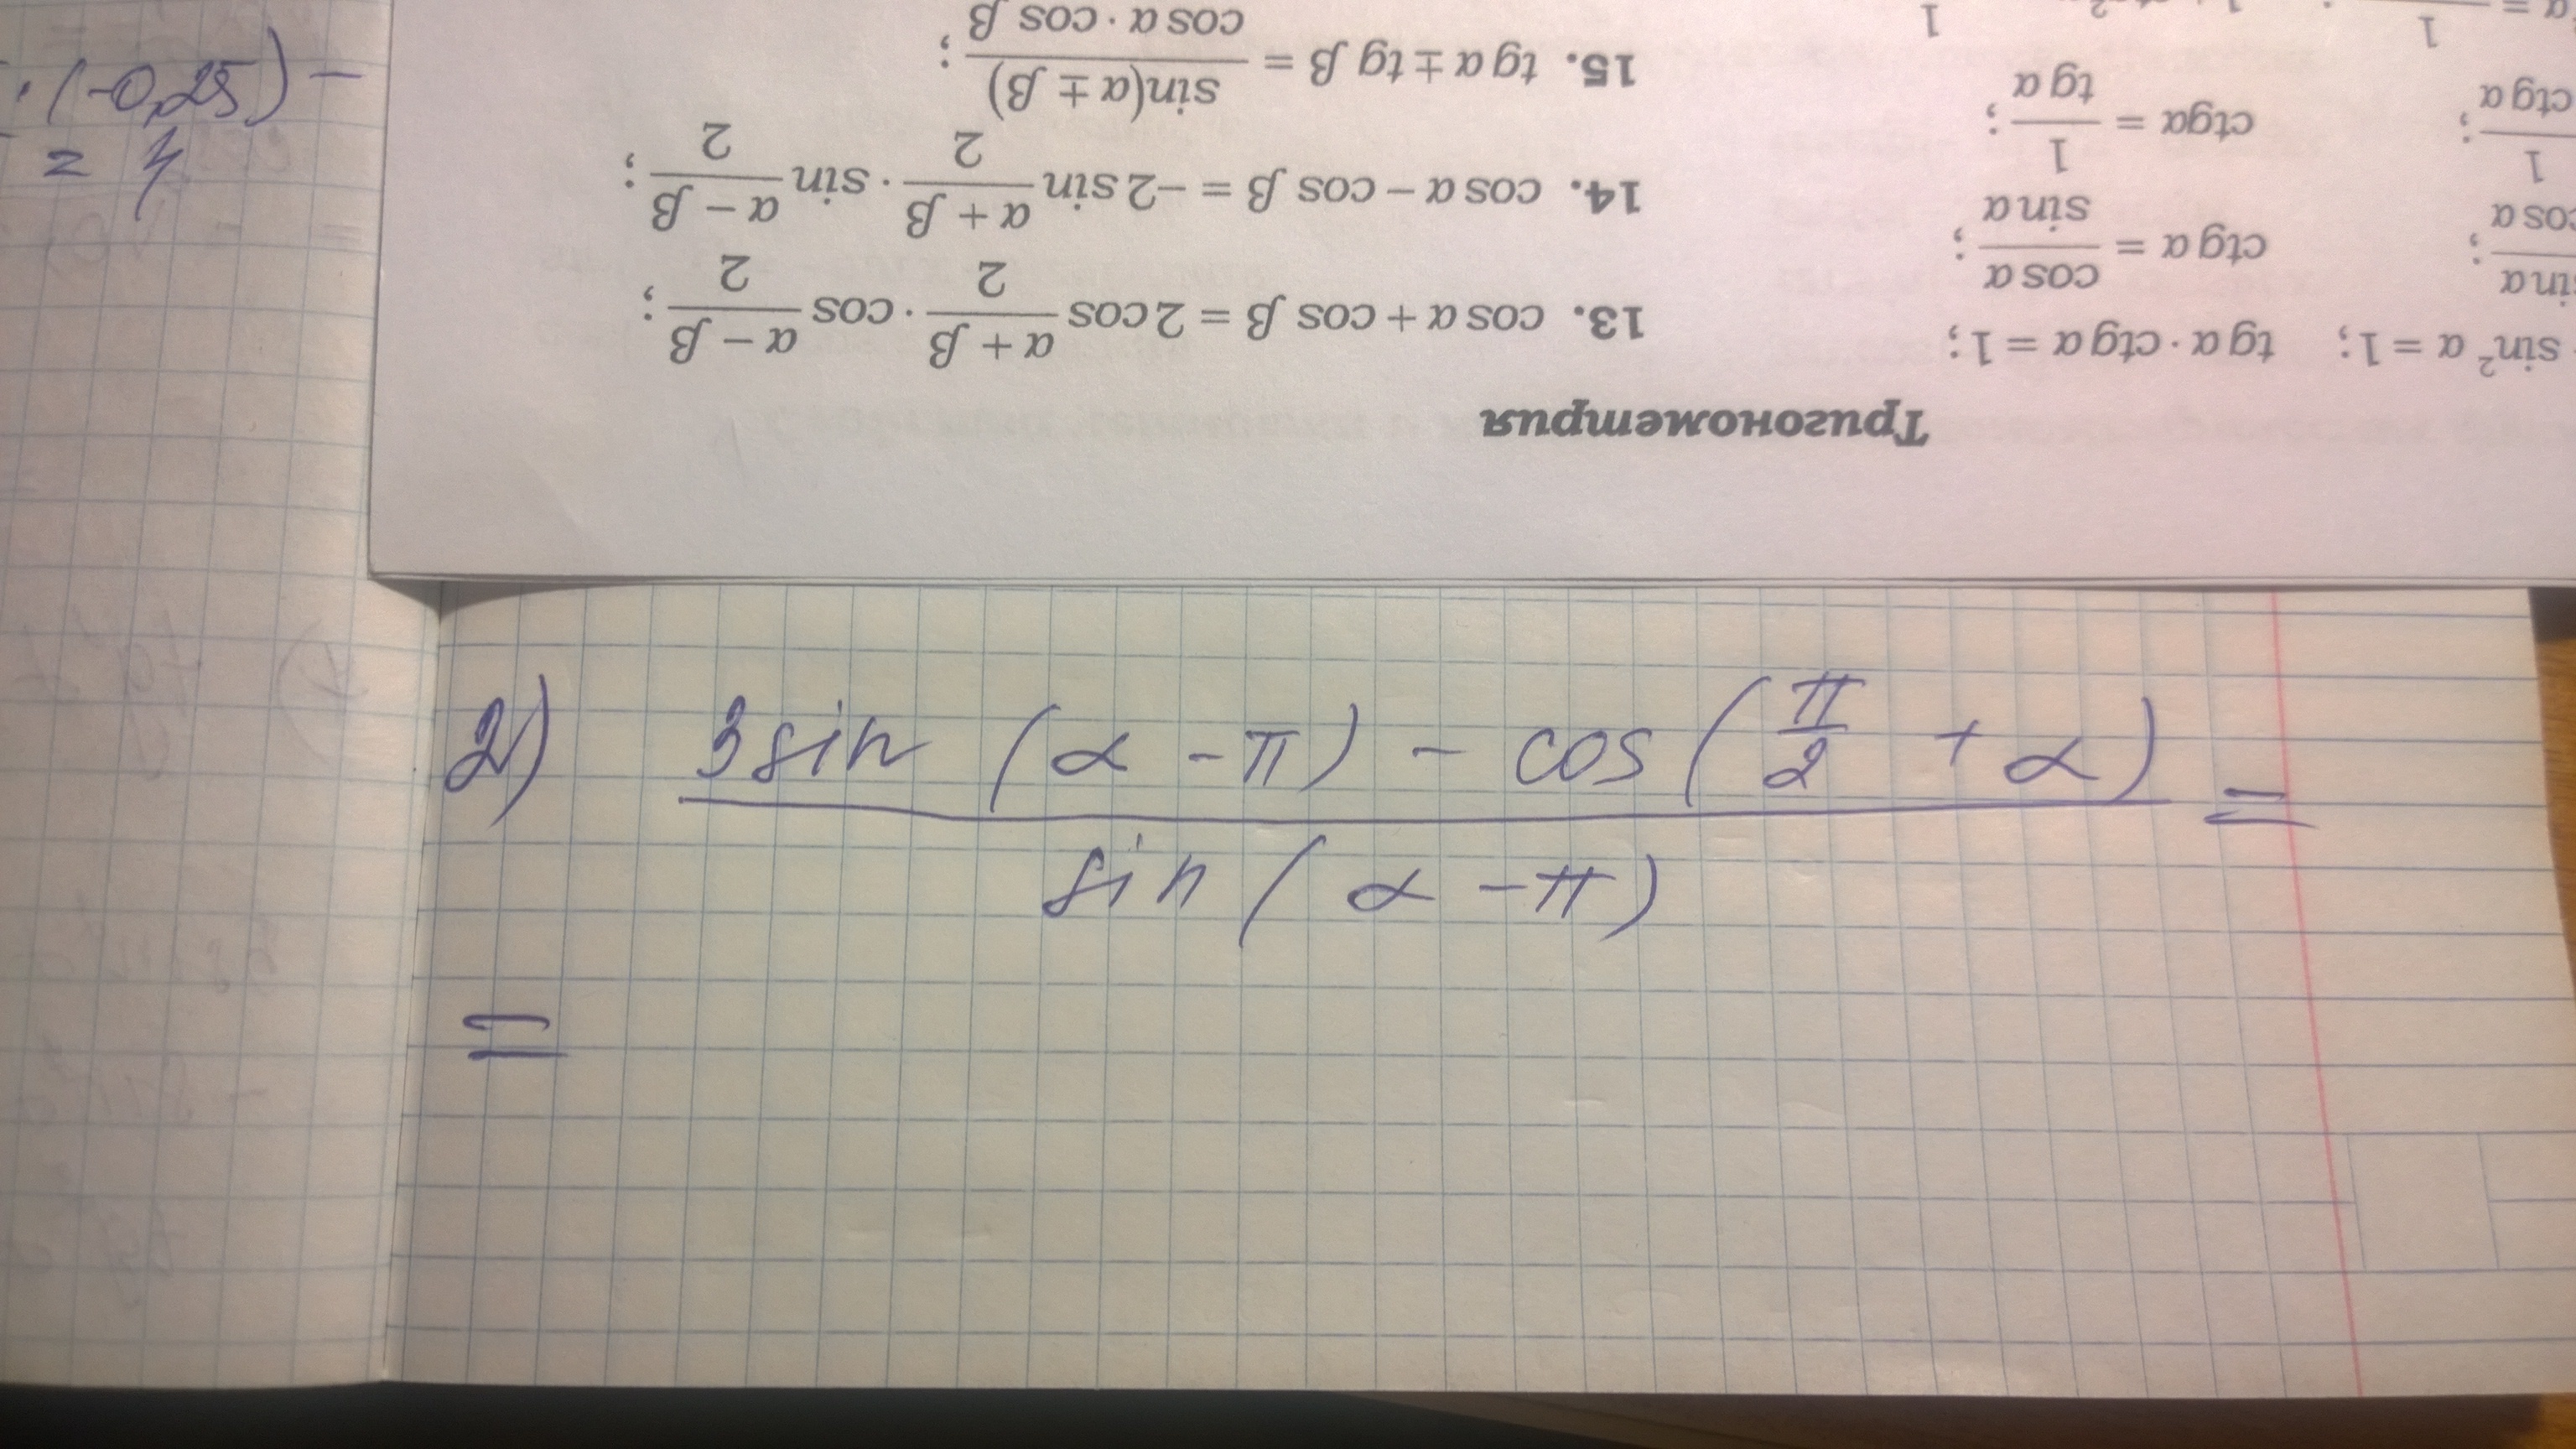 · (-0,25) -
= 4
Тригонометрия
sin² α = 1; tg α · ctg α = 1;
ctg α = cos α / sin α;
ctgα = 1 / tg α;
13. cos α + cos β = 2cos (α + β)/2 · cos (α − β)/2;
14. cos α − cos β = −2 sin (α + β)/2 · sin (α − β)/2;
15. tg α ± tg β = sin(α ± β) / cos α · cos β;
2) 3 sin (α - π) - cos (π/2 + α) =
sin (α - π)
=